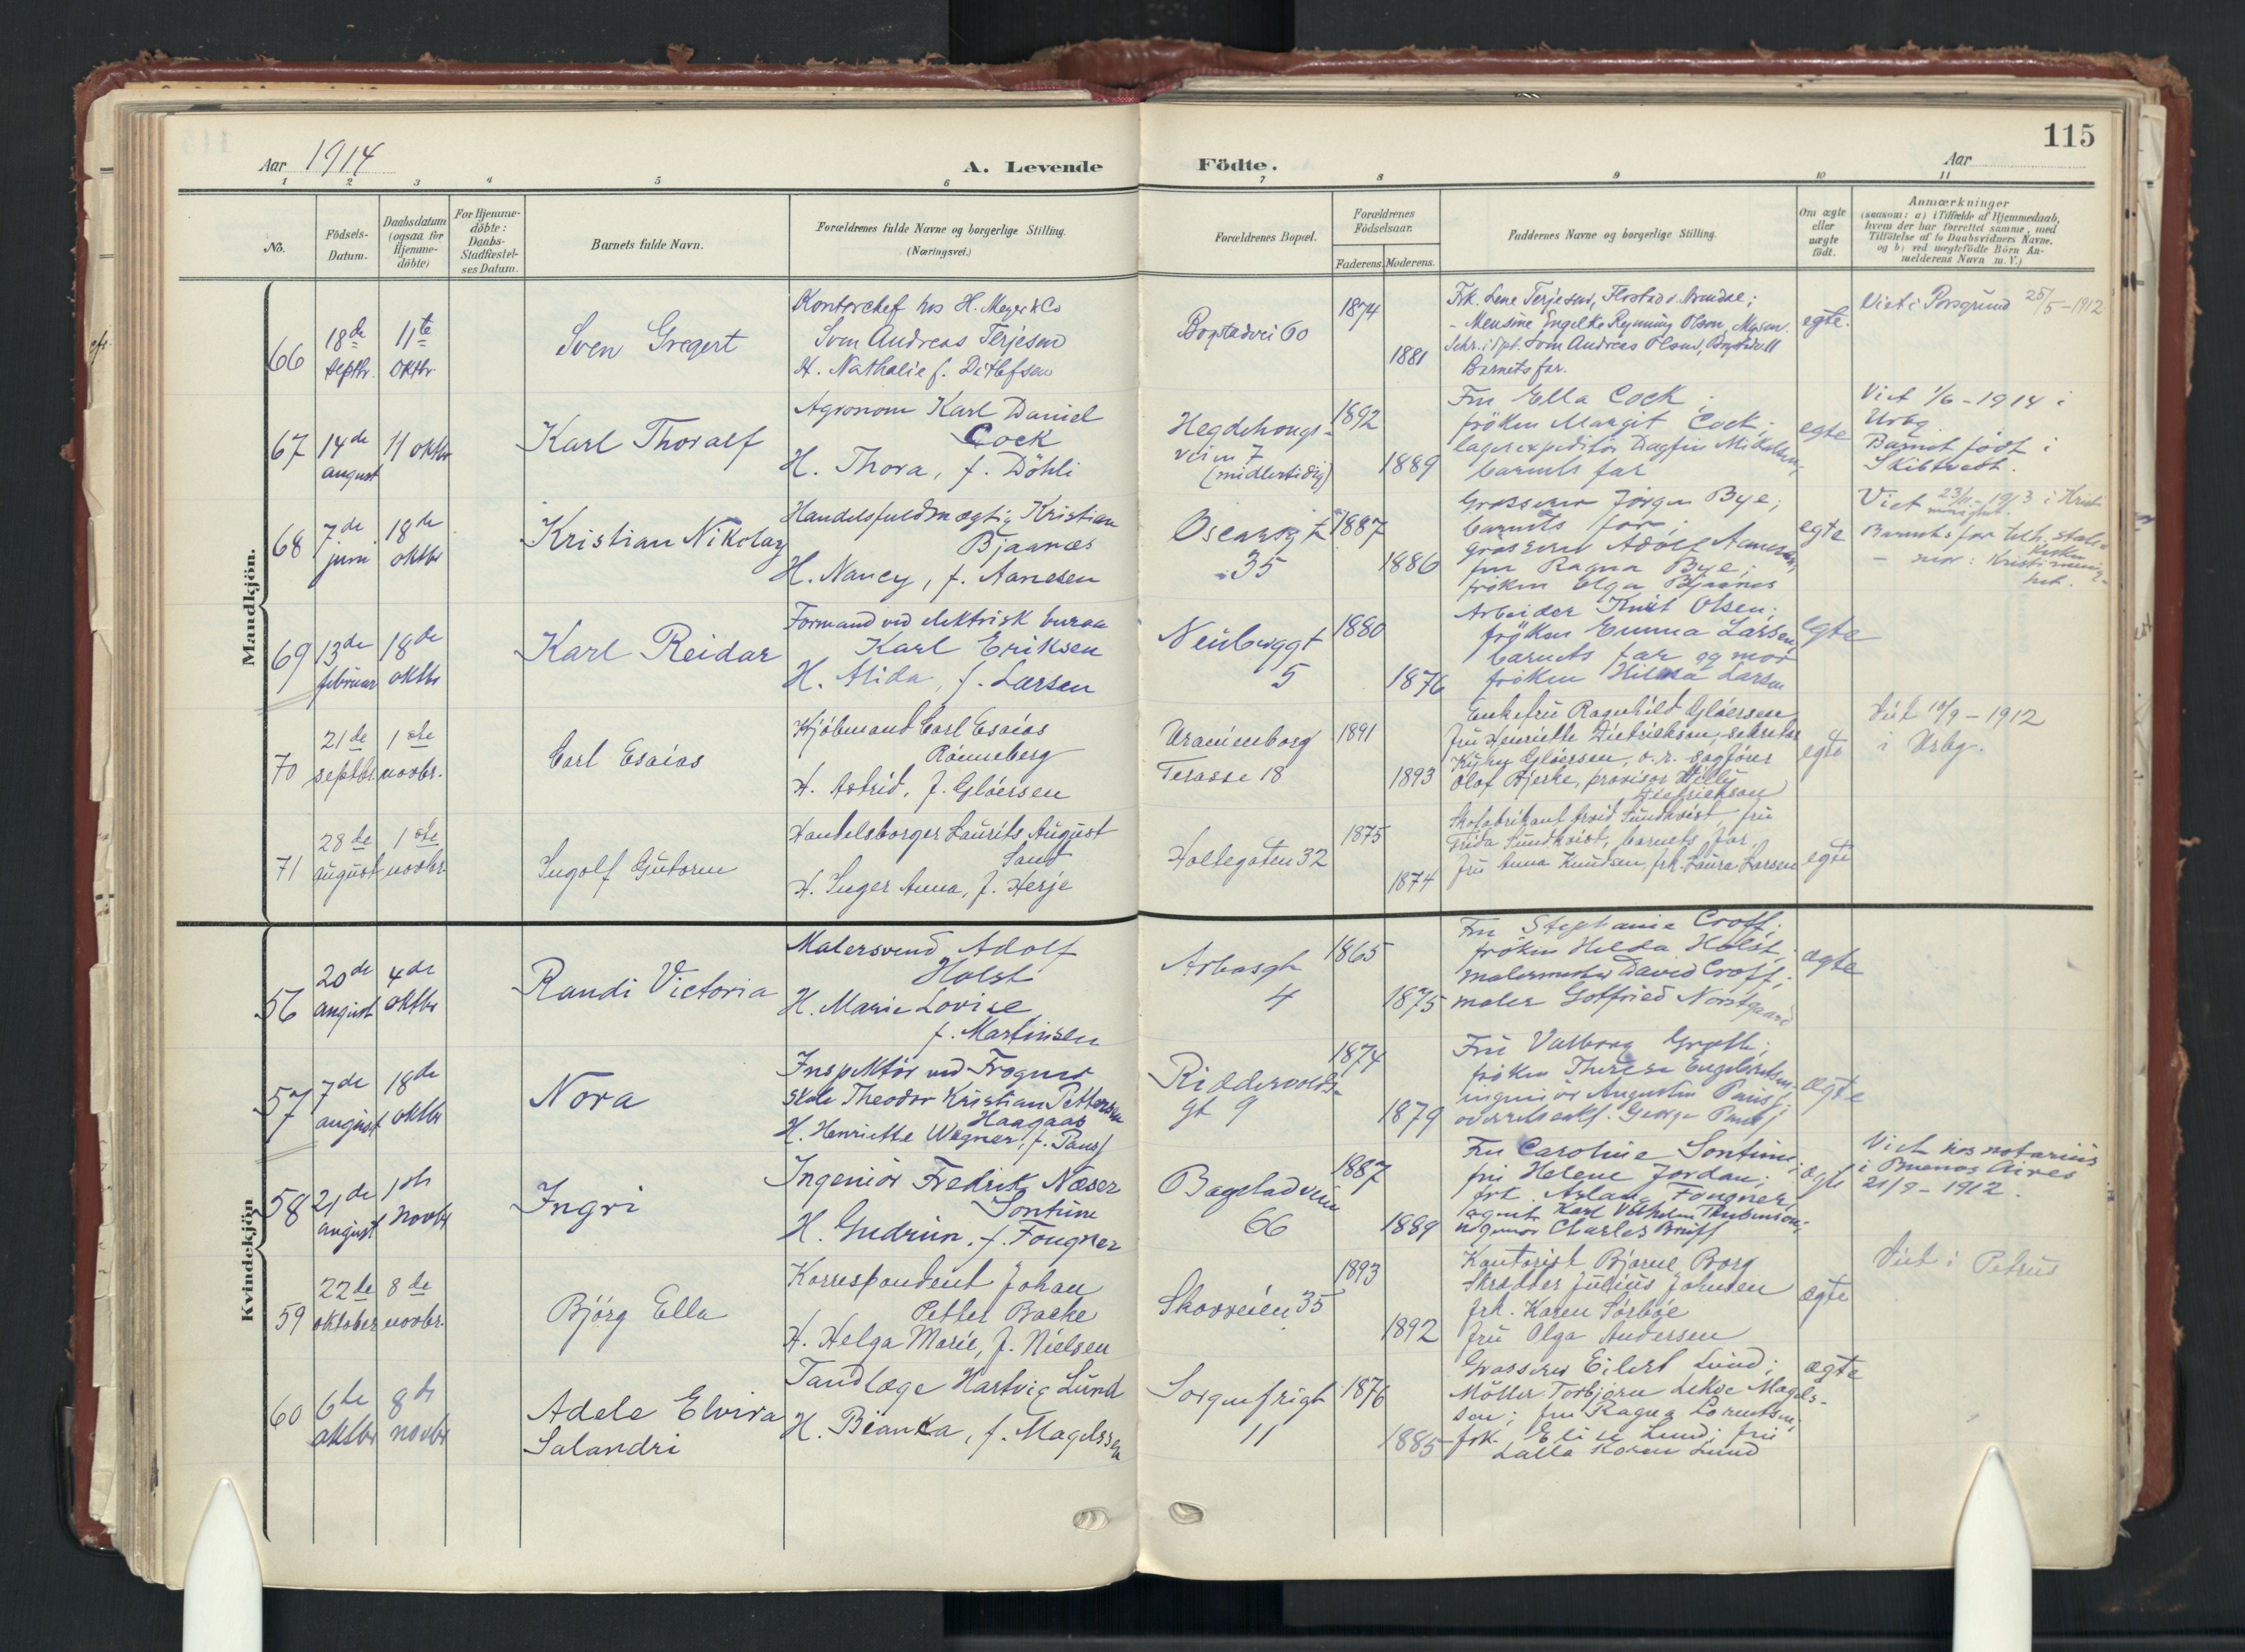 115
Aar 1914
A. Levende
Födte.
Aar
1 2 3 4 5 6 7 8 9 10 11
No.
Födsels-
Datum.
Daabsdatum
(ogsaa for
Hjemme-
döbte)
For Hjemme-
döbte:
Daabs-
Stadfæstel-
ses Datum.
Barnets fulde Navn.
Forældrenes fulde Navne og borgerlige Stilling.
(Næringsvei.)
Forældrenes Bopæl.
Forældrenes
Födselsaar.
Faderens. Moderens.
Faddernes Navne og borgerlige Stilling.
Om ægte
eller
uægte
födt.
Anmærkninger
(saasom: a) i Tilfælde af Hjemmedaab,
hvem der har forrettet samme, med
Tilföielse af to Daabsvidners Navne,
og b) ved uægtefödte Börn An-
melderens Navn m. V.)
Mandkjön.
66
18de
septbr.
11te
oktbr
Sven Gregert
Kontorchef hos H. Meyer & Co
Sven Andreas Terjesen
H. Nathalie f. Ditlefsen
Bogstadvei 60
1874
1881
Frk. Lene Terjesen,
Barnets far.
egte.
Viet i Porsgrund 25/5-1912
67
14de
august
11 oktbr
Karl Thoralf
Agronom Karl Daniel
Cock
H. Thora, f. Döhli
Hegdehaugs-
veien 7
(midlertidig)
1892
1889
Fru Ella Cock;
fröken Margit Cock;
lagerexpeditör Dagfin Mikelsen,
barnets far
egte
Viet 1/6-1914 i
Urbg.
Barnet födt i
Skibtvedt.
68
7de
juni
18de
oktbr
Kristian Nikolay
Handelsfuldmægtig Kristian
Bjaanæs
H. Nancy, f. Aanesen
Oscarsgt
35
1887
1886
Grosserer Jörgen Bye;
barnets far;
grosserer Adolf Aanesen;
fru Ragna Bye;
fröken Olga Bjaanæs
egte
Viet 1913 i
Barnets far tilh. stats-
kirken
- mor:
69
13de
februar
18de
oktbr
Karl Reidar
Formand ved elektrisk bureau
Karl Eriksen
H. Alida, f. Larsen
Neubergt
5
1880
1876
Arbeider Knut Olsen;
fröken Emma Larsen,
barnets far og mor
fröken Hilma Larsen
egte
70
21de
septbr.
1ste
novbr.
Carl Esaias
Kjöbmand Carl Esaias
Rønneberg
H. Astrid, f. Gløersen
Uranienborg
Terasse 18
1891
1893
Enkefru Ragnhild Gløersen
fru Henriette Dietrichson, sekretær
Gløersen, o.r. sagförer
Olaf Bjerke, provisor Willy
Dietrichson
egte
Viet 10/9-1912
i Urbg.
71
28de
august
1ste
novbr.
Ingolf Gutorm
Handelsborger Laurits August
Sand
H. Inger Anna, f. Herje
Holtegaten 32
1875
1874
Skofabrikant Arvid Sundkvist, fru
Frida Sundkvist, barnets far,
fru Anna Knudsen, frk. Laura Larsen
egte
Kvindekjön
56
20de
august
4de
oktbr
Randi Victoria
Malersvend Adolf
Holst
H. Marie Lovise
f. Martinsen
Arbosgt
4
1865
1875
Fru Stephanie Croff;
fröken Hilda Holst;
malermester David Croff;
maler Gotfried Norstgaard
ægte
57
7de
august
18de
oktbr
Nora
Inspektör ved Frogner
skole Theodor Kristian Pettersen
Haagaas
H. Henriette Wegner, f. Paus
Riddervolds-
gt 9
1874
1879
Fru Valborg
fröken Therese Engelbretsen
ingeniör Augustin Paus;
overretssakf. George Paus
ægte
58
21de
august
1ste
novbr
Ingri
Ingeniör Fredrik Næser
Sontum
H. Gudrun, f. Fougner
Bogstadveien
66
1887
1889
Fru Caroline Sontum;
fru Helene Jordan;
frk. Aslaug Fougner
agent Karl Vilhelm
ingeniör Charles
ægte
Viet hos notarius
i Buenos Aires
21/9-1912.
59
22de
oktober
8de
novbr.
Bjørg Ella
Korrespondent Johan
Petter Backe
H. Helga Marie, f. Nielsen
Skovveien 35
1893
1892
Kontorist Bjarne Borg
Skrædder Julius Johnsen
frk. Karen Sørbøe
fru Olga Andersen
ægte
Viet i Petrus
60
6te
oktbr
8de
novbr
Adele Elvira
Salandri
Tandlæge Hartvig Lund
H. Bianka, f. Magelssen
Sorgenfrigt
11
1876
1885
Grosserer Eilert Lund;
Möller Torbjörn Lekve Magels-
sen; fru Ragna Lorentsen,
frk. Elise Lund; fru
Lalla Koren Lund
ægte